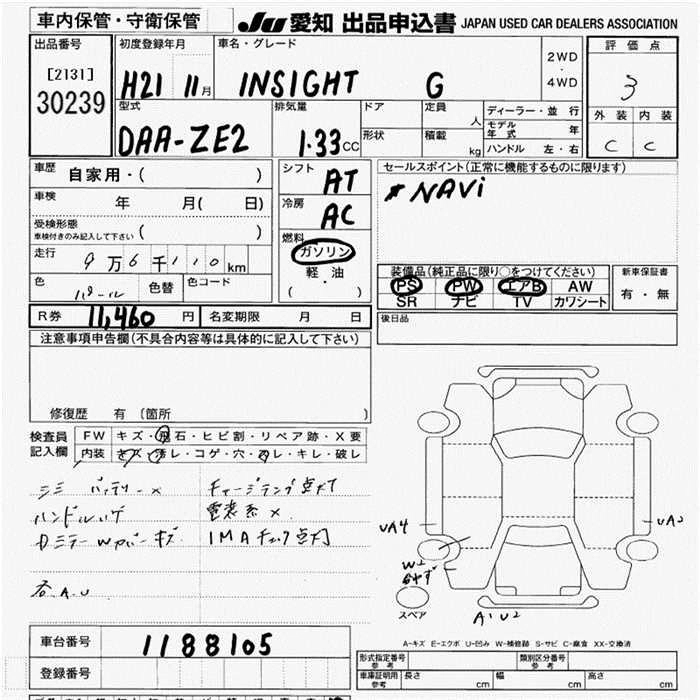 車内保管・守衛保管
JU 愛知 出品申込書 JAPAN USED CAR DEALERS ASSOCIATION
出品番号
[2131]
30239
初度登録年月
H21 11月
車名・グレード
INSIGHT G
2WD
・
4WD
評価点
3
外装 内装
C C
型式
DAA-ZE2
排気量
1.33CC
ドア
形状
定員
人
積載
kg
ディーラー・並行
モデル年式 年
ハンドル 左・右
車歴 自家用・( )
車検 年 月( 日)
受検形態
車検付きのみ記入して下さい ( )
走行 9万6千110km
色 パール 色替 色コード
シフト AT
冷房 AC
燃料
ガソリン
軽・油
( ・ )
セールスポイント(正常に機能するものに限ります)
* NAVi
装備品(純正品に限り○をつけてください)
PS PW エアB AW
SR ナビ TV カワシート
新車保証書
有・無
R券 11,460円 名変期限 月 日
後日品
注意事項申告欄(不具合内容等は具体的に記入して下さい)
修復歴 有 (箇所 )
検査員記入欄
FW キズ・飛石・ヒビ割・リペア跡・X要
内装 キズ・汚レ・コゲ・穴・スレ・キレ・破レ
バッテリー× チャージランプ点灯
ハンドル
IMAチェック点灯
A.U
UA4
UA2
W2
A1 U2
スペア
A-キズ E-エクボ U-凹み W-補修跡 S-サビ C-腐食 XX-交換済
車台番号 1188105
登録番号
型式指定番号 参考
類別区分番号 参考
車庫証明用 参考 長さ cm 幅 cm 高さ cm